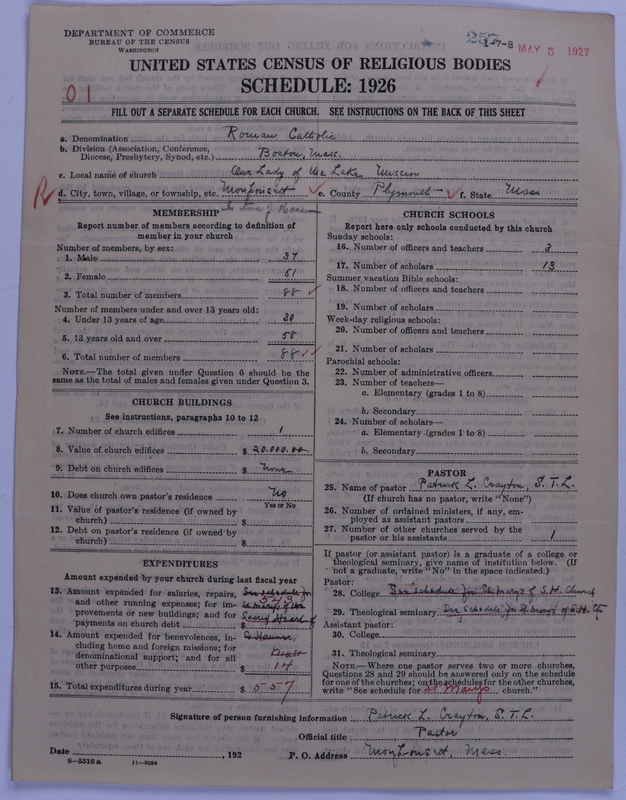 DEPARTMENT OF COMMERCE
BUREAU OF THE CENSUS
WASHINGTON
257
1-7-8
MAY 5 1927
UNITED STATES CENSUS OF RELIGIOUS BODIES
SCHEDULE: 1926
01
FILL OUT A SEPARATE SCHEDULE FOR EACH CHURCH. SEE INSTRUCTIONS ON THE BACK OF THIS SHEET
a. Denomination Roman Catholic
b. Division (Association, Conference, Diocese, Presbytery, Synod, etc.) Boston, Mass.
c. Local name of church Our Lady of the Lake Mission
R d. City, town, village, or township, etc. Monponsett e. County Plymouth f. State Mass
MEMBERSHIP
Report number of members according to definition of
member in your church
Number of members, by sex:
1. Male 37
2. Female 51
3. Total number of members 88
Number of members under and over 13 years old:
4. Under 13 years of age 30
5. 13 years old and over 58
6. Total number of members 88
NOTE.—The total given under Question 6 should be the
same as the total of males and females given under Question 3.
CHURCH BUILDINGS
See instructions, paragraphs 10 to 12
7. Number of church edifices 1
8. Value of church edifices $ 20.000.00
9. Debt on church edifices $ None
10. Does church own pastor's residence No
Yes or No
11. Value of pastor's residence (if owned by
church) $
12. Debt on pastor's residence (if owned by
church) $
EXPENDITURES
Amount expended by your church during last fiscal year
13. Amount expended for salaries, repairs, See schedule for
and other running expenses; for im- 543
provements or new buildings; and for
payments on church debt $ Sacred Heart
14. Amount expended for benevolences, in-
cluding home and foreign missions; for
denominational support; and for all
other purposes $ 14
15. Total expenditures during year $ 557
CHURCH SCHOOLS
Report here only schools conducted by this church
Sunday schools:
16. Number of officers and teachers 3
17. Number of scholars 13
Summer vacation Bible schools:
18. Number of officers and teachers
19. Number of scholars
Week-day religious schools:
20. Number of officers and teachers
21. Number of scholars
Parochial schools:
22. Number of administrative officers
23. Number of teachers—
a. Elementary (grades 1 to 8)
b. Secondary
24. Number of scholars—
a. Elementary (grades 1 to 8)
b. Secondary
PASTOR
25. Name of pastor Patrick L. Crayton, S.T.L.
(If church has no pastor, write "None")
26. Number of ordained ministers, if any, em-
ployed as assistant pastors
27. Number of other churches served by the
pastor or his assistants 1
If pastor (or assistant pastor) is a graduate of a college or
theological seminary, give name of institution below. (If
not a graduate, write "No" in the space indicated.)
Pastor:
28. College See schedule for St. Mary's of S.H. Church
29. Theological seminary See schedule for St Mary's of S.H. Ch
Assistant pastor:
30. College
31. Theological seminary
NOTE.—Where one pastor serves two or more churches,
Questions 28 and 29 should be answered only on the schedule
for one of the churches; on the schedules for the other churches,
write "See schedule for St Marys church."
Signature of person furnishing information Patrick L. Crayton, S.T.L.
Official title Pastor
Date , 192 P. O. Address Monponsett, Mass.
8-5518a 11-9034